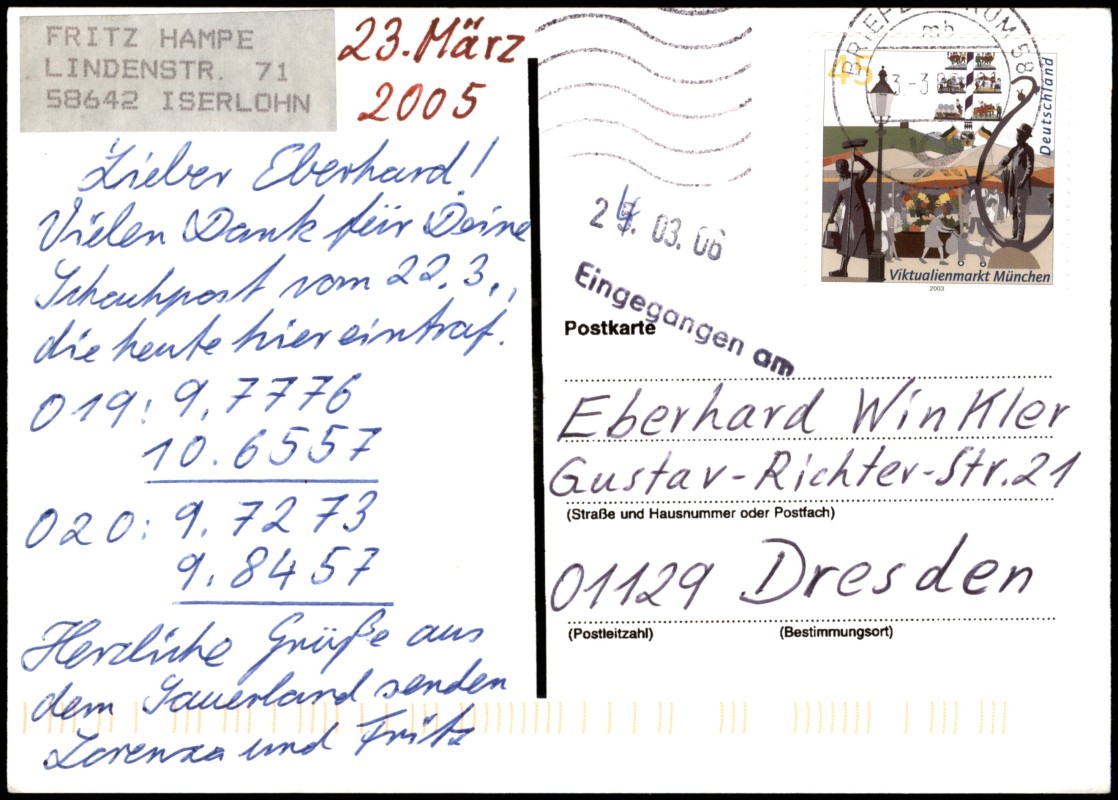 FRITZ HAMPE
LINDENSTR. 71
58642 ISERLOHN
23. März
2005
Lieber Eberhard!
Vielen Dank für Deine
Schachpost vom 22.3.,
die heute hier eintraf.
019: 9.7776
10.6557
020: 9.7273
9.8457
Herzliche Grüße aus
dem Sauerland senden
Lorenza und Fritz
BRIEFZENTRUM 58
mb
45
Deutschland
Viktualienmarkt München
2003
03.06
Eingegangen am
Postkarte
Eberhard Winkler
Gustav-Richter-Str. 21
(Straße und Hausnummer oder Postfach)
01129 Dresden
(Postleitzahl) (Bestimmungsort)